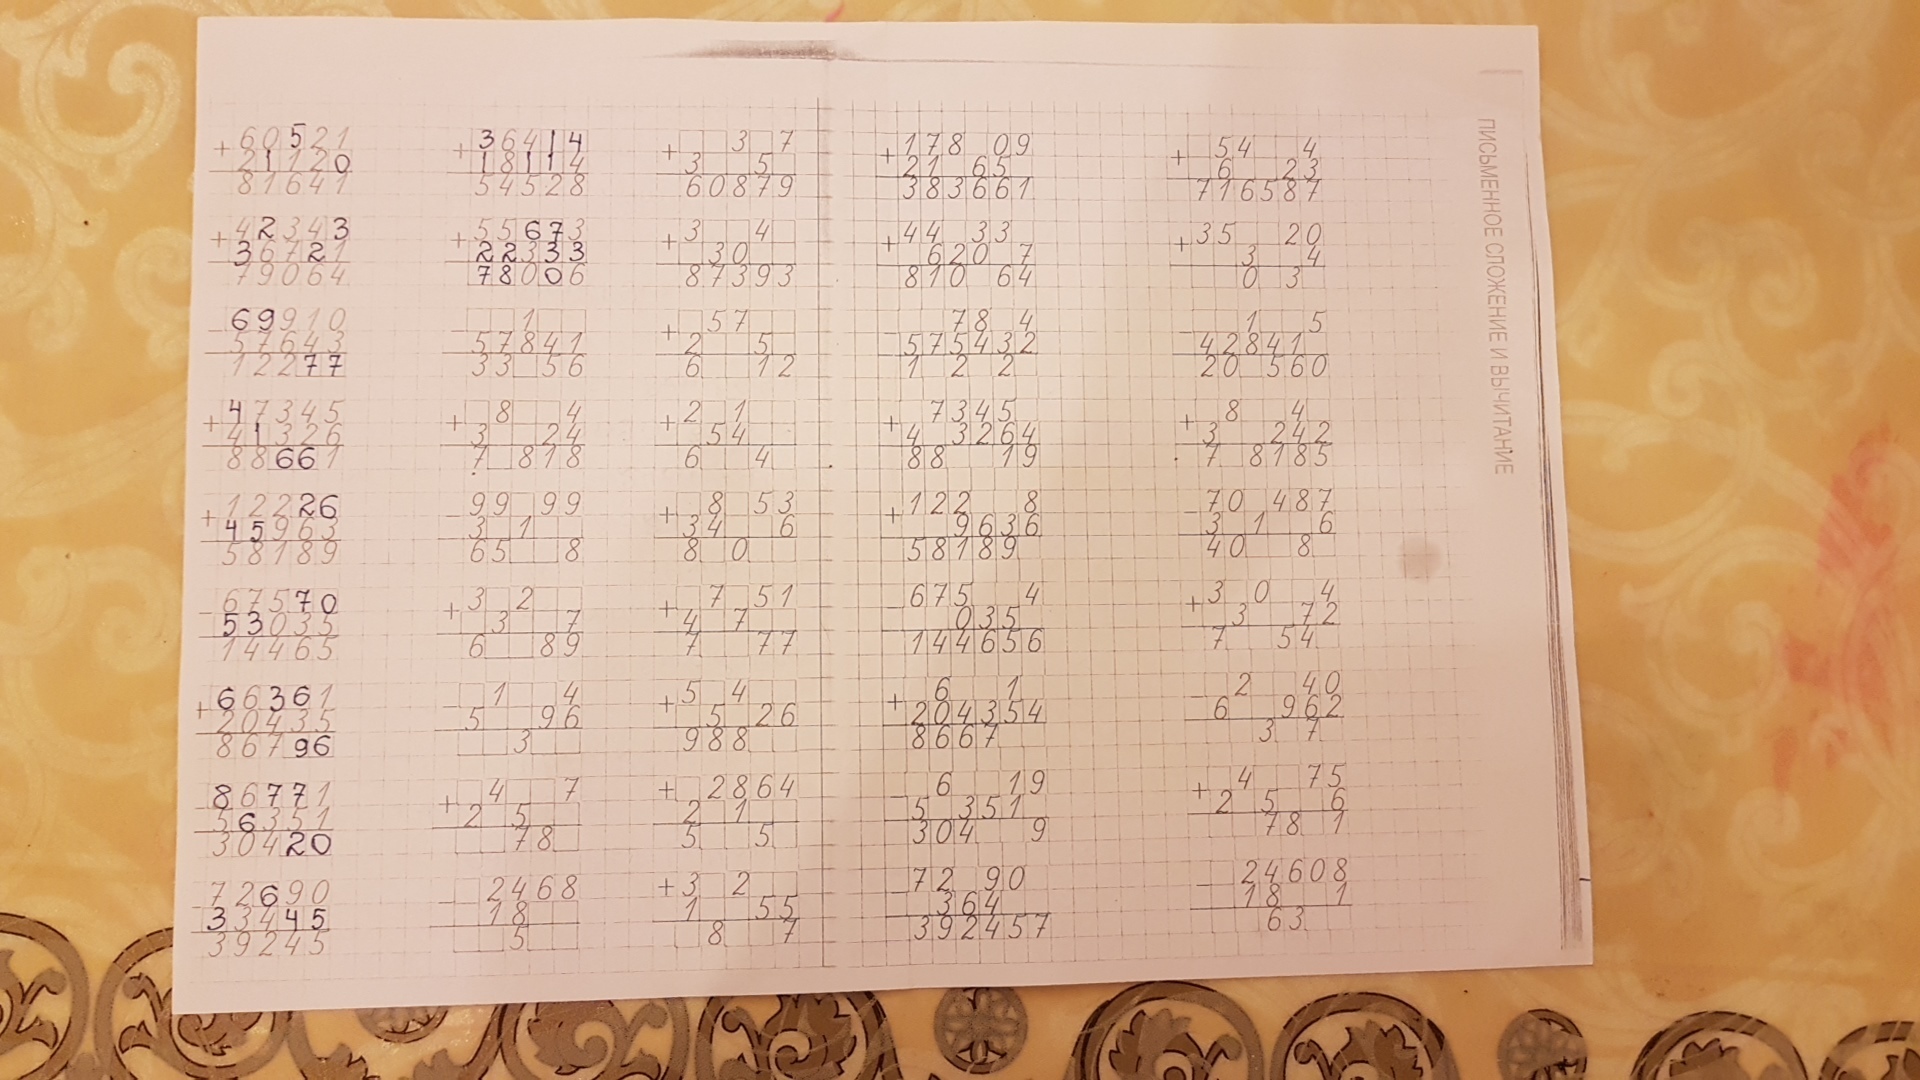 + 60521 + 36414 + 3 7 + 178 09 + 54 4
21120 18114 3 5 21 65 6 23
81641 54528 60879 383661 716587
+ 42343 + 55673 + 3 4 + 44 33 + 35 20
36721 22333 30 620 7 3 4
79064 78006 87393 810 64 0 3
- 69910 - 1 + 57 - 78 4 - 1 5
57643 57841 2 5 575432 42841
12277 33 56 6 12 1 2 2 20 560
+ 47345 + 8 4 + 2 1 + 7345 + 8 4
41326 3 24 54 4 3264 3 242
88661 7 818 6 4 88 19 7 8185
+ 12226 - 99 99 + 8 53 + 122 8 - 70 487
45963 3 1 34 6 9636 3 1 6
58189 65 8 8 0 58189 40 8
- 67570 + 3 2 + 7 51 - 675 4 + 3 0 4
53035 3 7 4 7 035 3 72
14465 6 89 7 77 144656 7 54
+ 66361 - 1 4 + 5 4 + 6 1 - 2 40
20435 5 96 5 26 204354 6 962
86796 3 988 8667 3 7
- 86771 + 4 7 + 2864 - 6 19 + 4 75
56351 2 5 2 1 5 351 2 5 6
30420 78 5 5 304 9 78 1
- 72690 - 2468 + 3 2 - 72 90 - 24608
33445 18 1 55 364 18 1
39245 5 8 7 392457 63
ПИСЬМЕННОЕ СЛОЖЕНИЕ И ВЫЧИТАНИЕ